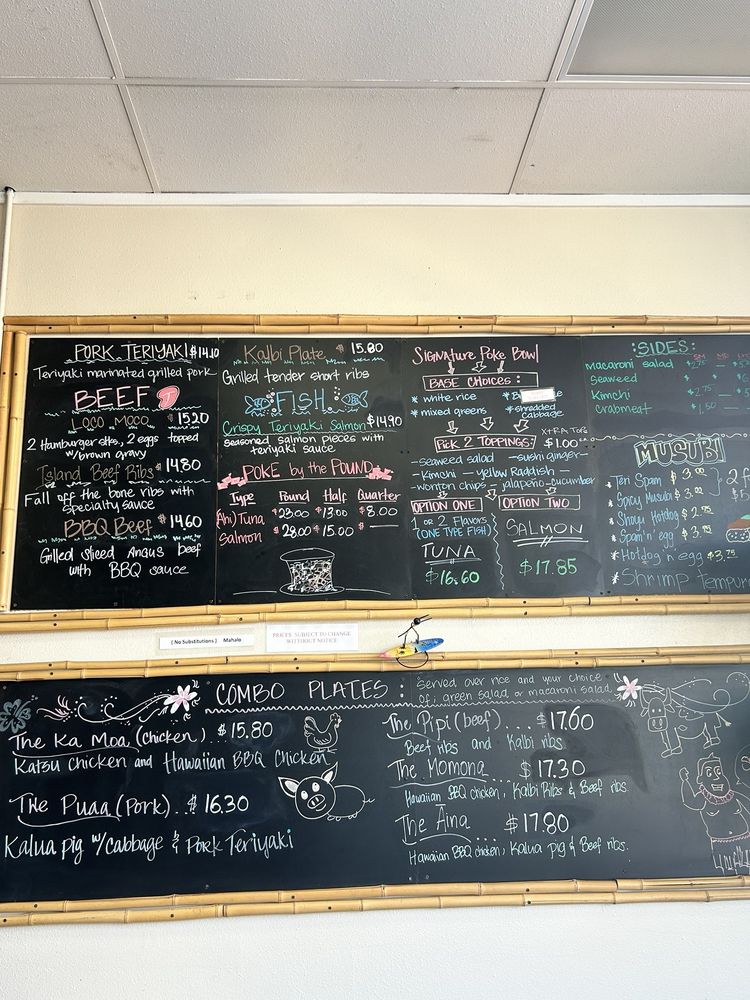 PORK TERIYAKI $14.10
Teriyaki marinated grilled pork
BEEF
LOCO MOCO $15.20
2 Hamburger stks, 2 eggs topped
w/brown gravy
Island Beef Ribs $14.80
Fall off the bone ribs with
specialty sauce
BBQ Beef $14.60
Grilled sliced Angus beef
with BBQ sauce
Kalbi Plate $15.80
Grilled tender short ribs
FISH
Crispy Teriyaki Salmon $14.90
seasoned salmon pieces with
teriyaki sauce
POKE by the POUND
Type Pound Half Quarter
(Ahi) Tuna $23.00 $13.00 $8.00
Salmon $28.00 $15.00 $ —
Signature Poke Bowl
BASE CHOICES:
* white rice
* mixed greens
* shredded
cabbage
Pick 2 TOPPINGS:
XTRA Tops
$1.00
-seaweed salad -sushi ginger-
-Kimchi -yellow Raddish-
-wonton chips -jalapeño -cucumber
OPTION ONE
1 or 2 Flavors
(ONE TYPE FISH)
TUNA
$16.60
OPTION TWO
SALMON
$17.85
:SIDES:
macaroni salad $2.75
Seaweed
Kimchi $2.75
Crabmeat $1.50
MUSUBI
* Teri Spam
* Spicy Musubi
* Shoyu Hotdog
* Spam n' egg
* Hotdog n egg $3.75
* Shrimp Tempura
( No Substitutions ) Mahalo
PRICES SUBJECT TO CHANGE
WITHOUT NOTICE
COMBO PLATES:
Served over rice and your choice
of, green salad or macaroni salad
The Ka Moa (chicken) $15.80
Katsu chicken and Hawaiian BBQ Chicken
The Puaa (Pork) .. $16.30
Kalua pig w/cabbage & Pork Teriyaki
The Pipi (beef) .... $17.60
Beef ribs and Kalbi ribs
The Momona $17.30
Hawaiian BBQ chicken, Kalbi Ribs & Beef ribs
The Aina $17.80
Hawaiian BBQ chicken, Kalua pig & Beef ribs.